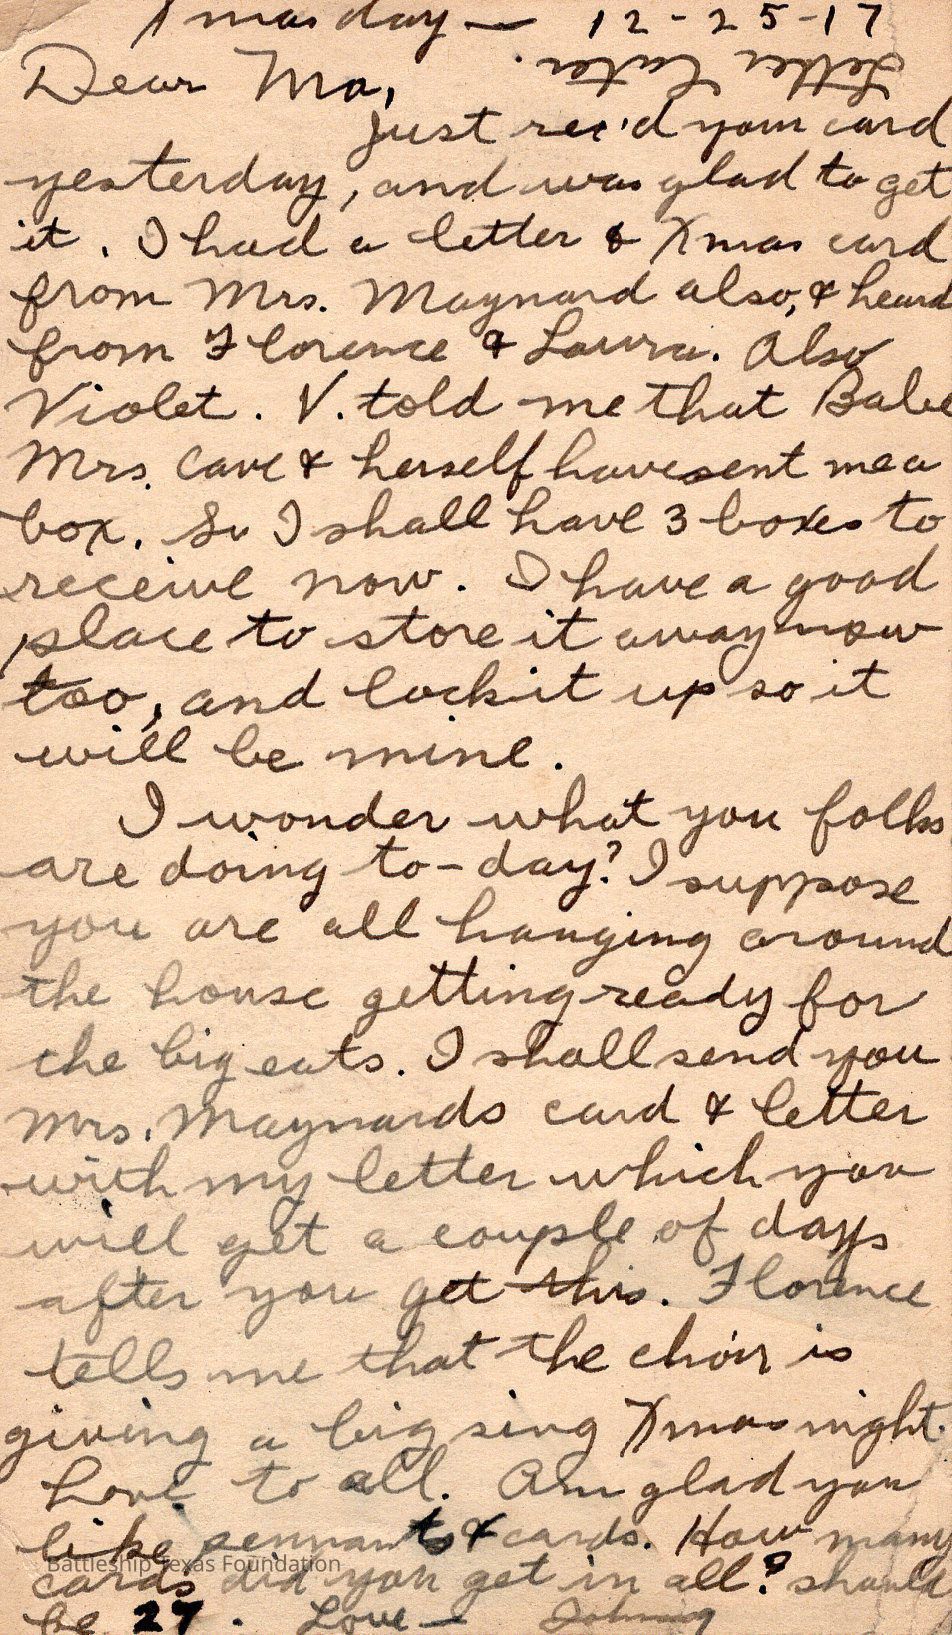 Xmas day — 12-25-17
Letter Later.
Dear Ma,
Just rec'd your card
yesterday, and was glad to get
it. I had a letter & Xmas card
from Mrs. Maynard also, & heard
from Florence & Laura. Also
Violet. V. told me that Babe
Mrs. Cave & herself have sent me a
box. So I shall have 3 boxes to
receive now. I have a good
place to store it away now
too, and lock it up so it
will be mine.
I wonder what you folks
are doing to-day? I suppose
you are all hanging around
the house getting ready for
the big eats. I shall send you
Mrs. Maynards card & letter
with my letter which you
will get a couple of days
after you get this. Florence
tells me that the choir is
giving a big sing Xmas night.
Love to all. Am glad you
like pennants & cards. How many
cards did you get in all? should
be 27. Love — Johnny
Battleship Texas Foundation